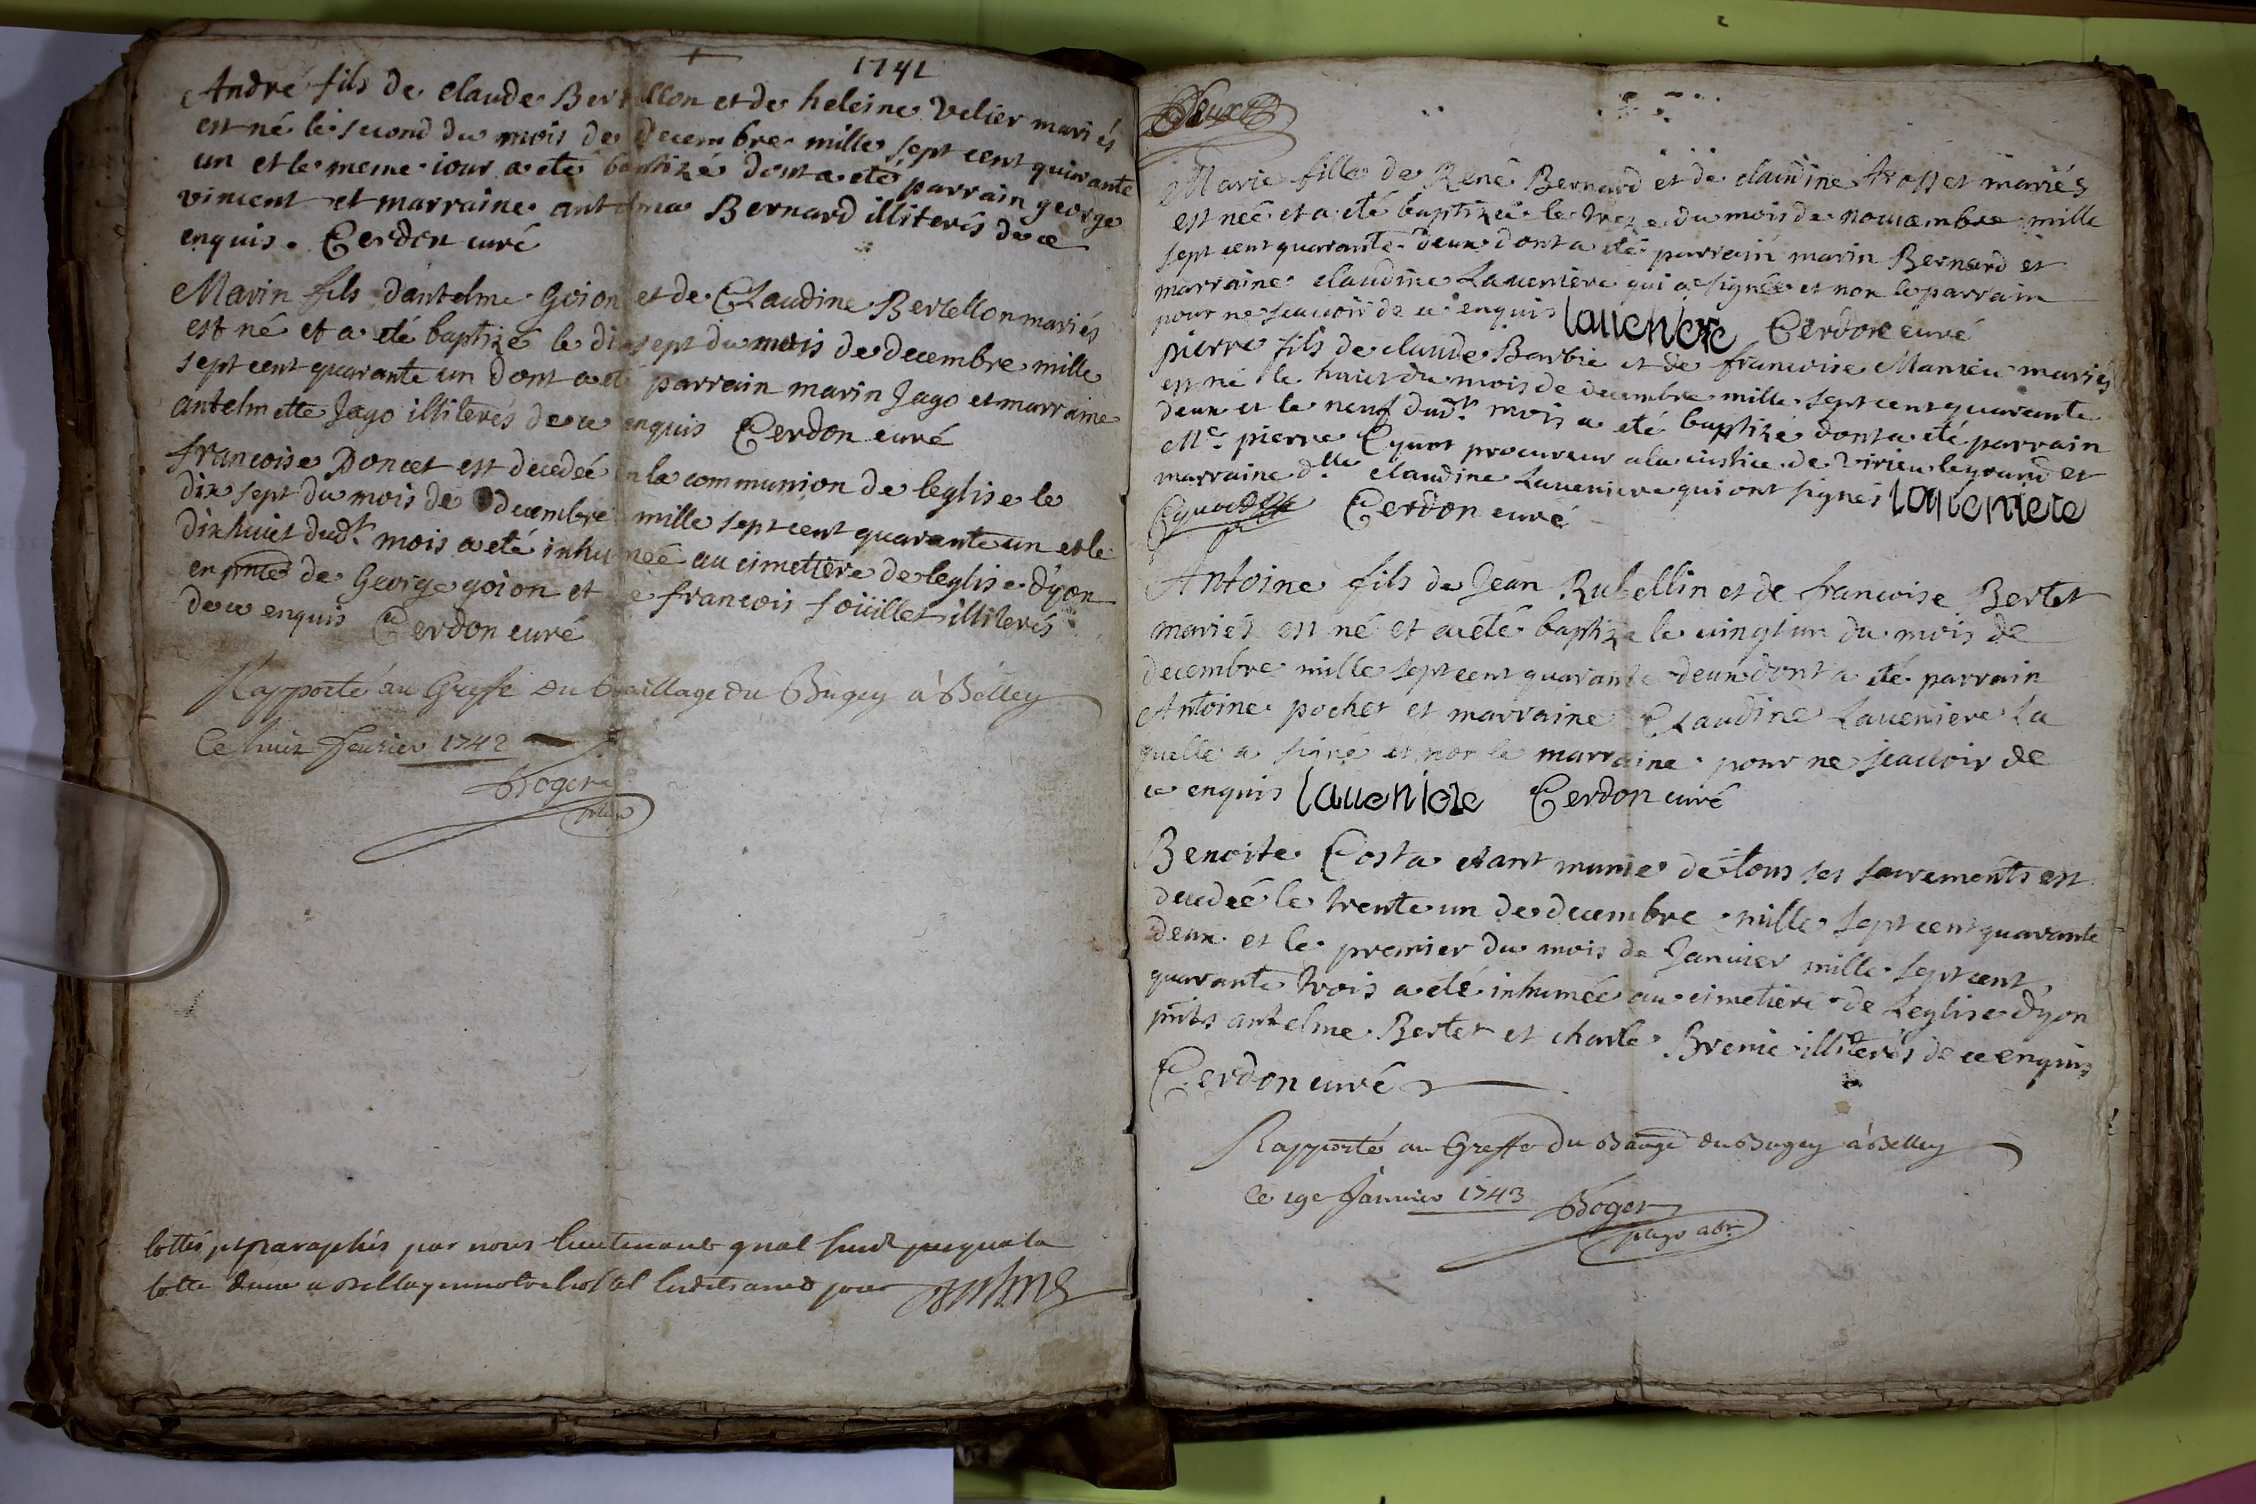 1741
André fils de claude Bertellon et de heleine Velier mariés
est né le second du mois de decembre mille sept cent quarante
un et le meme iour a eté baptizé dont a eté parrain george
vincent et marraine antelma Bernard illiterés de ce
enquis. Cerdon curé
Marin fils d'antelme Goion et de Claudine Bertellon mariés
est né et a eté baptizé le dixsept du mois de decembre mille
sept cent quarante un dont a eté parrain marin Jago et marraine
antelmette Jago illiterés de ce enquis Cerdon curé
francoise Doncet est decedeé en la communion de leglise le
dix sept du mois de decembre mille sept cent quarante un et le
dixhuict dudt. mois a eté inhumeé au cimetiere de leglise d'yon
en pnce de George goion et de francois soüillet illiterés
de ce enquis Cerdon curé
Rapporté au Greffe du bailliage du Bugey à Belley
Ce huit feurier 1742
Roger
cottés et paraphés par nous lieutenant gnal jusqua la
cotte deux a Belley en notre hostel lesdits an et jour
Deux
Marie fille de René Bernard et de claudine trosset mariés
est neé et a eté baptizeé le treze du mois de nouuembre mille
sept cent quarante deux dont a eté parrain marin Bernard et
marraine claudine Laueniere qui a signée et non le parrain
pour ne scauoir de ce enquis laueniere Cerdon curé
pierre fils de claude Barbie et de francoise Manieu mariés
est né le huict du mois de decembre mille sept cent quarante
deux et le neuf dudt. mois a eté baptizé dont a eté parrain
Me. pierre Cyuoct procureur a la iustice de Virieu le grand et
marraine dlle claudine Laueniere qui ont signés laueniere
Cerdon curé
Antoine fils de Jean Rubellin et de francoise Bertet
mariés est né et a eté baptize le uingt un du mois de
decembre mille sept cent quarante deux dont a eté parrain
Antoine pochet et marraine Claudine Laueniere La
quelle a signé et non le marraine pour ne scauoir de
ce enquis laueniere Cerdon curé
Benoite Costa etant munie de tous ses sacrements est
decedeé le trente un de decembre mille sept cent quarante
deux et le premier du mois de Januier mille sept cent
quarante trois a eté inhumeé au cimetiere de Leglise d'yon
pnts antelme Bertet et charle Brenie illiterés de ce enquis
Cerdon curé
Rapporté au Greffe du Bauge du Bugey à Belley
Ce 19e Januier 1743
Roger